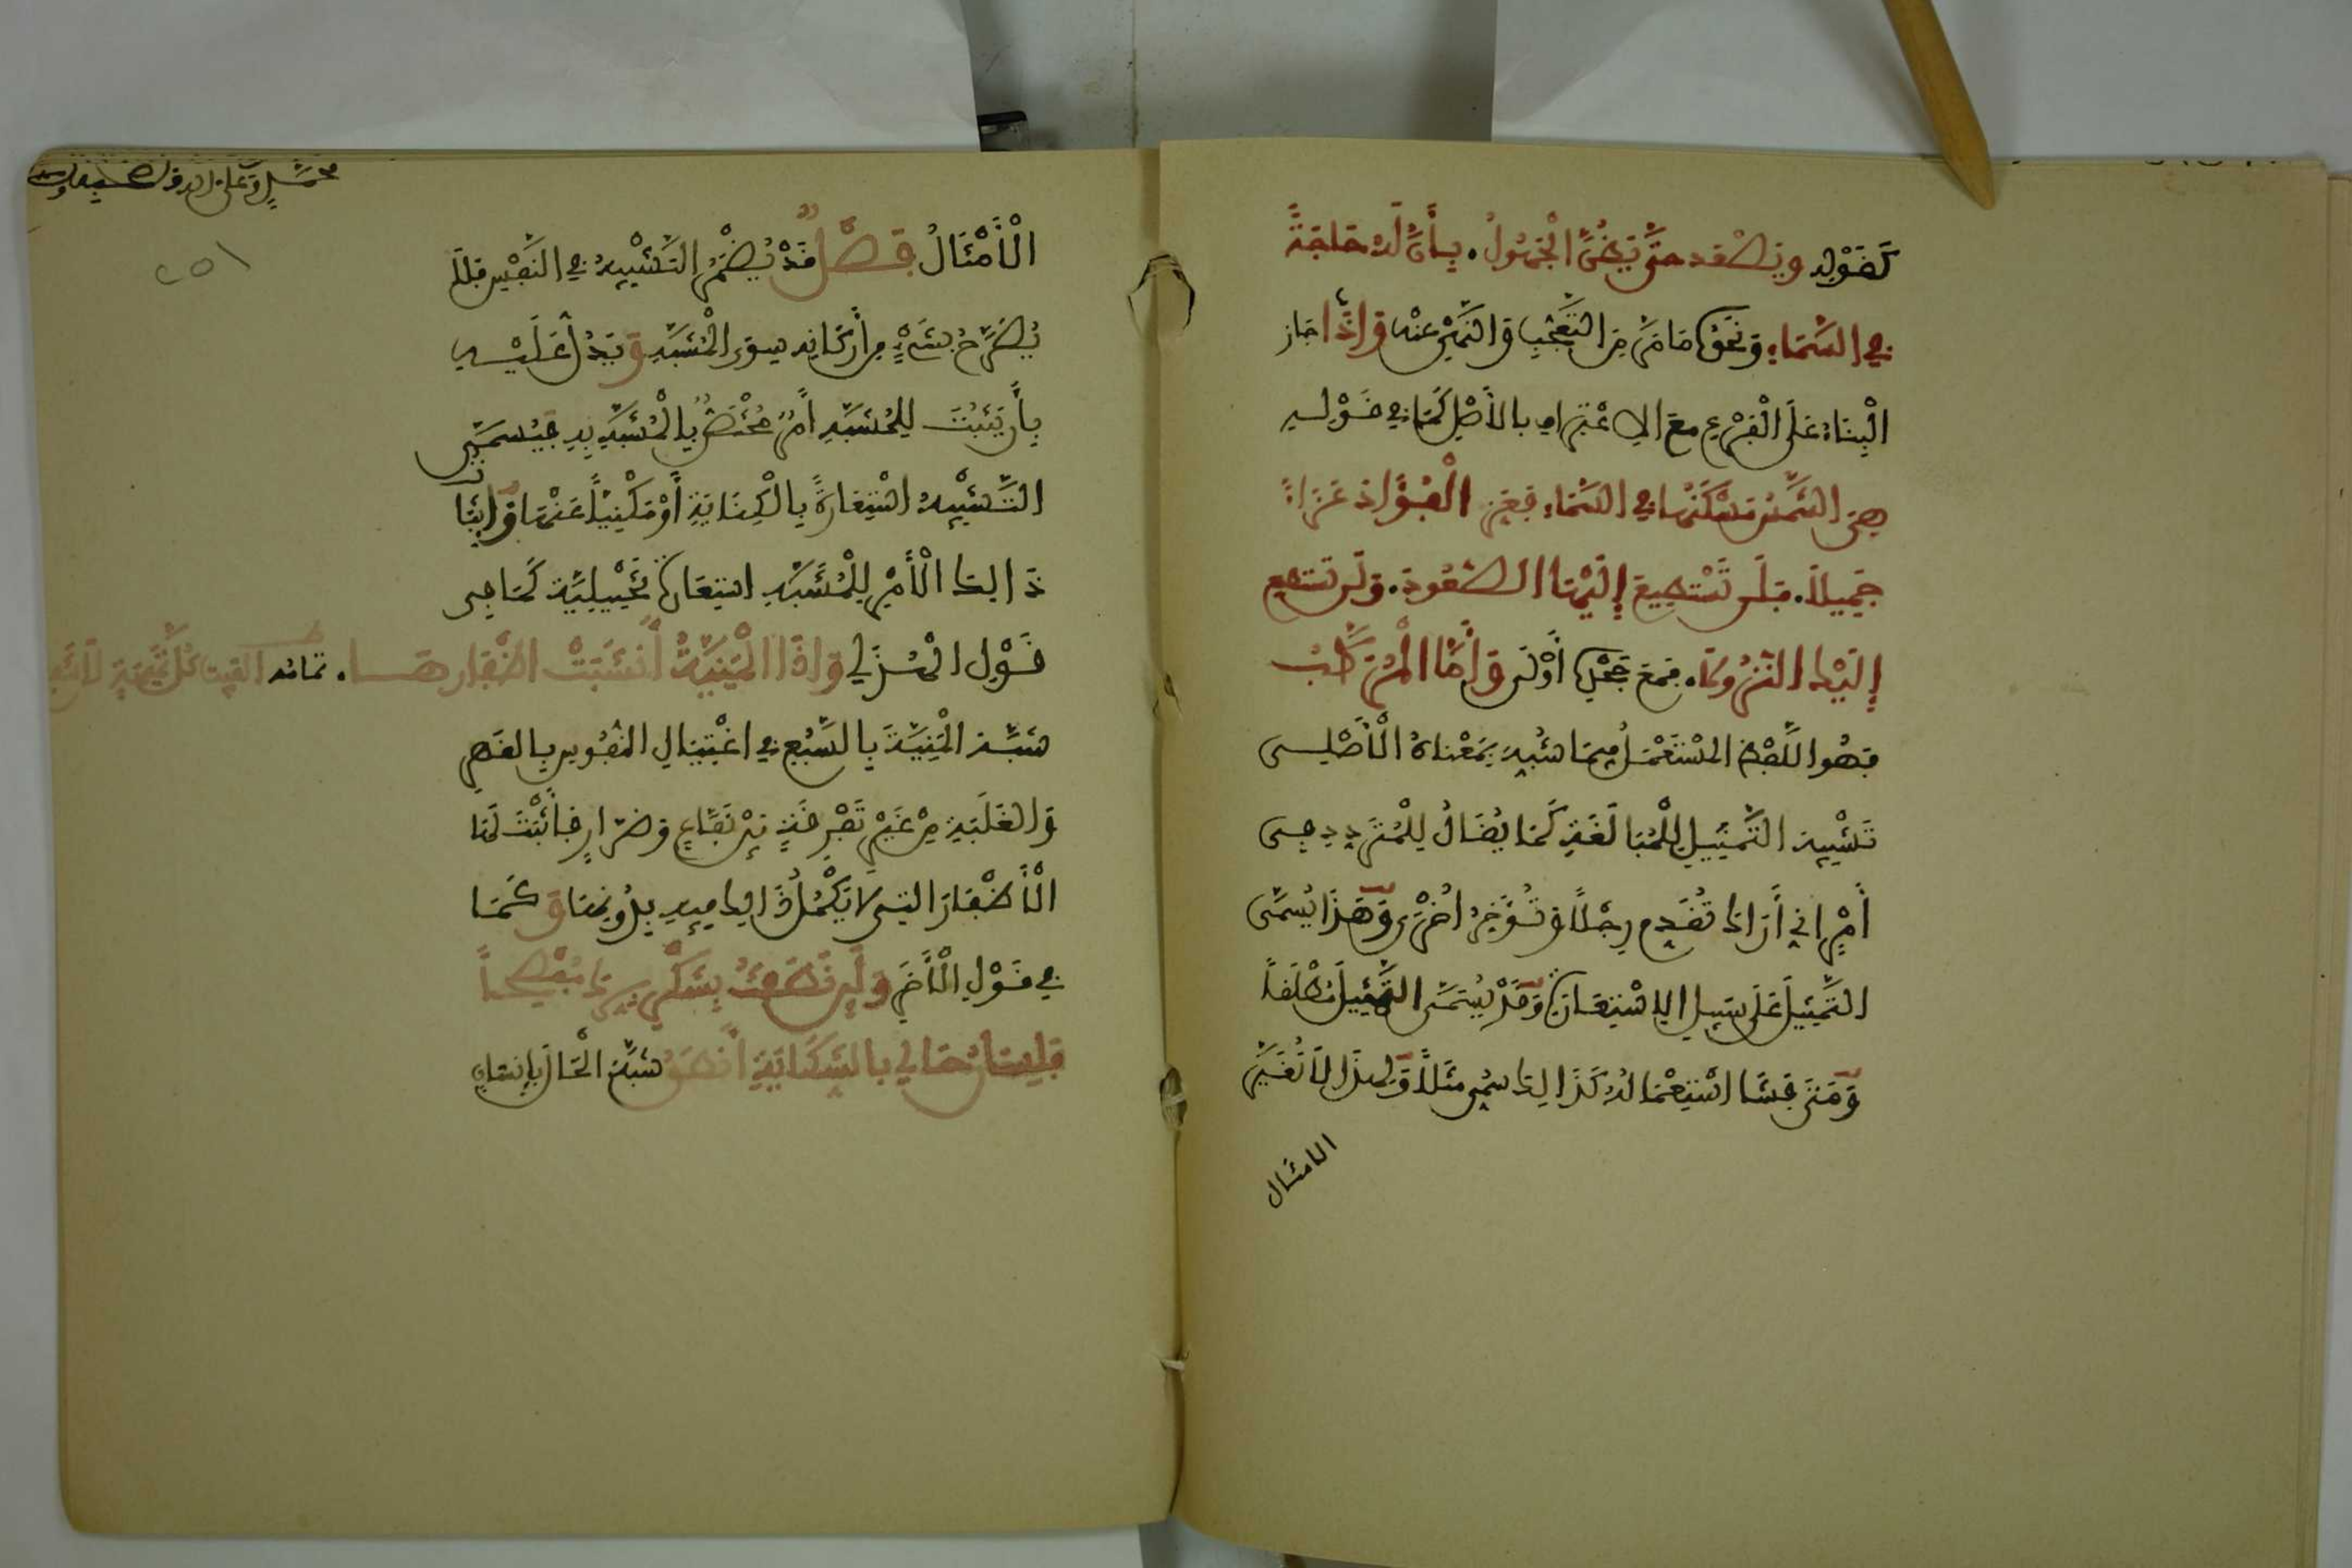 كَقَوْلِهِ وَيَصْعَدُ حَتَّى يَظُنَّ الْجَهُولُ. بِأَنَّ لَهُ حَاجَةً
فِي السَّمَاءِ وَنَحْوُهُ مَا مَرَّ مِنَ التَّعَجُّبِ وَالنَّهْيِ عَنْهُ وَإِذَا جَازَ
الْبِنَاءُ عَلَى الْفَرْعِ مَعَ الِاعْتِرَافِ بِالْأَصْلِ كَمَا فِي قَوْلِهِ
هِيَ الشَّمْسُ مَسْكَنُهَا فِي السَّمَاءِ فَعَزِّ الْفُؤَادَ عَزَاءً
جَمِيلًا. فَلَنْ تَسْتَطِيعَ إِلَيْهَا الصُّعُودَ. وَلَنْ تَسْتَطِيعَ
إِلَيْكَ النُّزُولَا. فَمَعَ جَحْدِهِ أَوْلَى وَأَمَّا الْمُرَكَّبُ
فَهُوَ اللَّفْظُ الْمُسْتَعْمَلُ فِيمَا شُبِّهَ بِمَعْنَاهُ الْأَصْلِي
تَشْبِيهَ التَّمْثِيلِ لِلْمُبَالَغَةِ كَمَا يُقَالُ لِلْمُتَرَدِّدِ فِي
أَمْرٍ إِنِّي أَرَاكَ تُقَدِّمُ رِجْلًا وَتُؤَخِّرُ أُخْرَى وَهَذَا يُسَمَّى
التَّمْثِيلَ عَلَى سَبِيلِ الِاسْتِعَارَةِ وَقَدْ يُسَمَّى التَّمْثِيلَ مُطْلَقًا
وَمَتَى فَشَا اسْتِعْمَالُهُ كَذَلِكَ سُمِّيَ مَثَلًا وَلِهَذَا لَا تُغَيَّرُ
الامثال
الْأَمْثَالُ فَصْلٌ قَدْ يُضْمَرُ التَّشْبِيهُ فِي النَّفْسِ فَلَا
يُصَرَّحُ بِشَيْءٍ مِنْ أَرْكَانِهِ سِوَى الْمُشَبَّهِ وَيُدَلُّ عَلَيْهِ
بِأَنْ يُثْبَتَ لِلْمُشَبَّهِ أَمْرٌ مُخْتَصٌّ بِالْمُشَبَّهِ بِهِ فَيُسَمَّى
التَّشْبِيهُ اسْتِعَارَةً بِالْكِنَايَةِ أَوْ مَكْنِيًّا عَنْهَا وَإِثْبَاتُ
ذَلِكَ الْأَمْرِ لِلْمُشَبَّهِ اسْتِعَارَةً تَخْيِيلِيَّةً كَمَا فِي
قَوْلِ الْهُذَلِي وَإِذَا الْمَنِيَّةُ أَنْشَبَتْ أَظْفَارَهَا. تمامه ألفيت كل تميمة لا تنفع
شَبَّهَ الْمَنِيَّةَ بِالسَّبُعِ فِي اغْتِيَالِ النُّفُوسِ بِالْقَهْرِ
وَالْغَلَبَةِ مِنْ غَيْرِ تَفْرِقَةٍ بَيْنَ نَفَّاعٍ وَضَرَّارٍ فَأَثْبَتَ لَهَا
الْأَظْفَارَ الَّتِي لَا يَكْمُلُ ذَلِكَ فِيهِ بِدُونِهَا وَكَمَا
فِي قَوْلِ الْآخَرِ وَلَئِنْ نَطَقْتُ بِشُكْرِ بِرِّكَ مُفْصِحًا
فَلِسَانُ حَالِي بِالشِّكَايَةِ أَنْطَقُ شَبَّهَ الْحَالَ بِإِنْسَانٍ